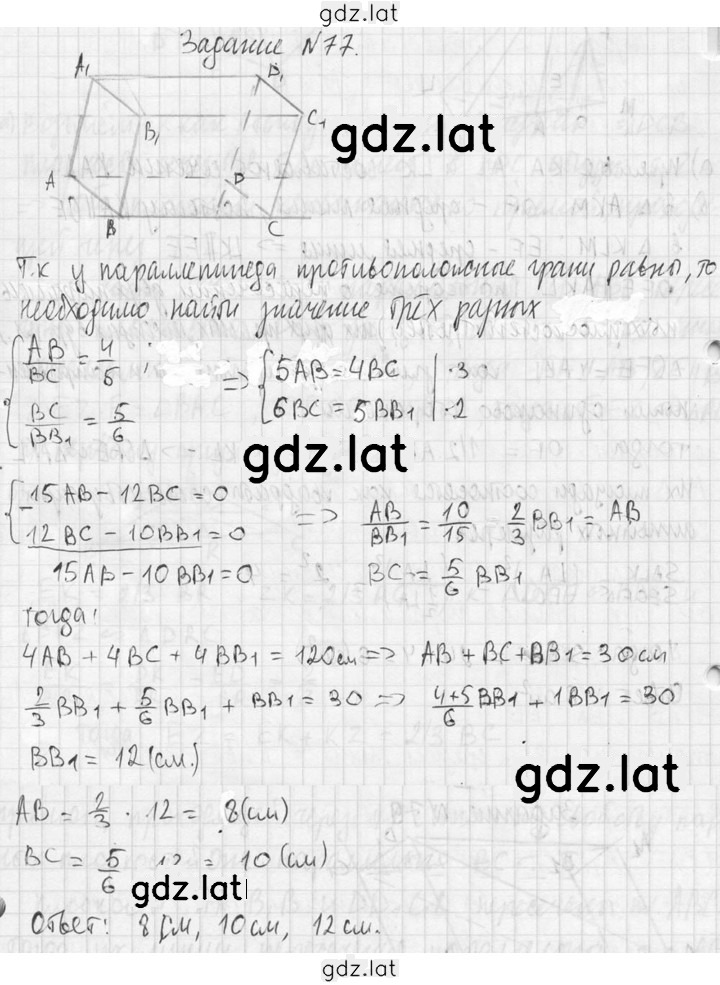 gdz.lat
Задание №77.
A1 D1
B1 C1
gdz.lat
A D
B C
Т.к у параллепипеда противоположные грани равны, то
необходимо найти значение трёх разных
AB/BC = 4/5 ; => 5AB = 4BC | ·3
BC/BB1 = 5/6 6BC = 5BB1 | ·2
gdz.lat
15AB - 12BC = 0 => AB/BB1 = 10/15 2/3 BB1 = AB
12BC - 10BB1 = 0
15AB - 10BB1 = 0 BC = 5/6 BB1
тогда:
4AB + 4BC + 4BB1 = 120см => AB + BC + BB1 = 30см
2/3 BB1 + 5/6 BB1 + BB1 = 30 => 4+5/6 BB1 + 1BB1 = 30
BB1 = 12 (см.)
gdz.lat
AB = 2/3 · 12 = 8(см)
BC = 5/6 · 12 = 10 (см)
gdz.lat
Ответ: 8см, 10см, 12см.
gdz.lat